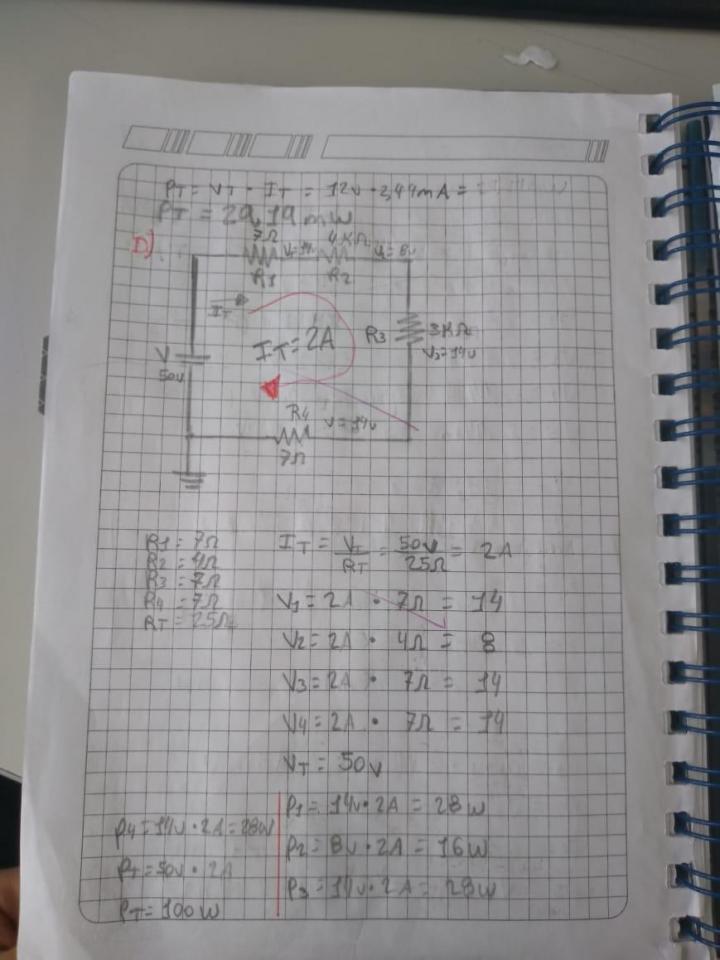 PT = VT · IT = 12v · 2,44mA =
PT = 29,19 mW
D)
7Ω V=14v 4KΩ V=8v
R1 R2
IT
IT = 2A
R3 3KΩ
V3=14v
V
50v
R4 V=14v
7Ω
R1 = 7Ω
R2 = 4Ω
R3 = 7Ω
R4 = 7Ω
RT = 25Ω
IT = VT/RT = 50v/25Ω = 2A
V1 = 2A · 7Ω = 14
V2 = 2A · 4Ω = 8
V3 = 2A · 7Ω = 14
V4 = 2A · 7Ω = 14
VT = 50v
P1 = 14v · 2A = 28w
P2 = 8v · 2A = 16w
P3 = 14v · 2A = 28w
P4 = 14v · 2A = 28w
PT = 50v · 2A
PT = 100w